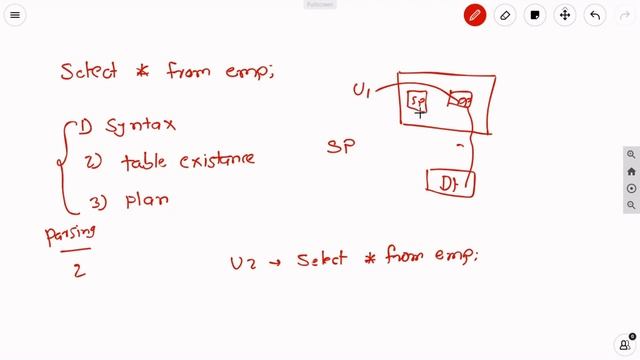 Fullscreen
Select * from emp;
U1
SP
1) Syntax
2) table existance
3) plan
SP
Df
Parsing
2
U2 → Select * from emp;
8